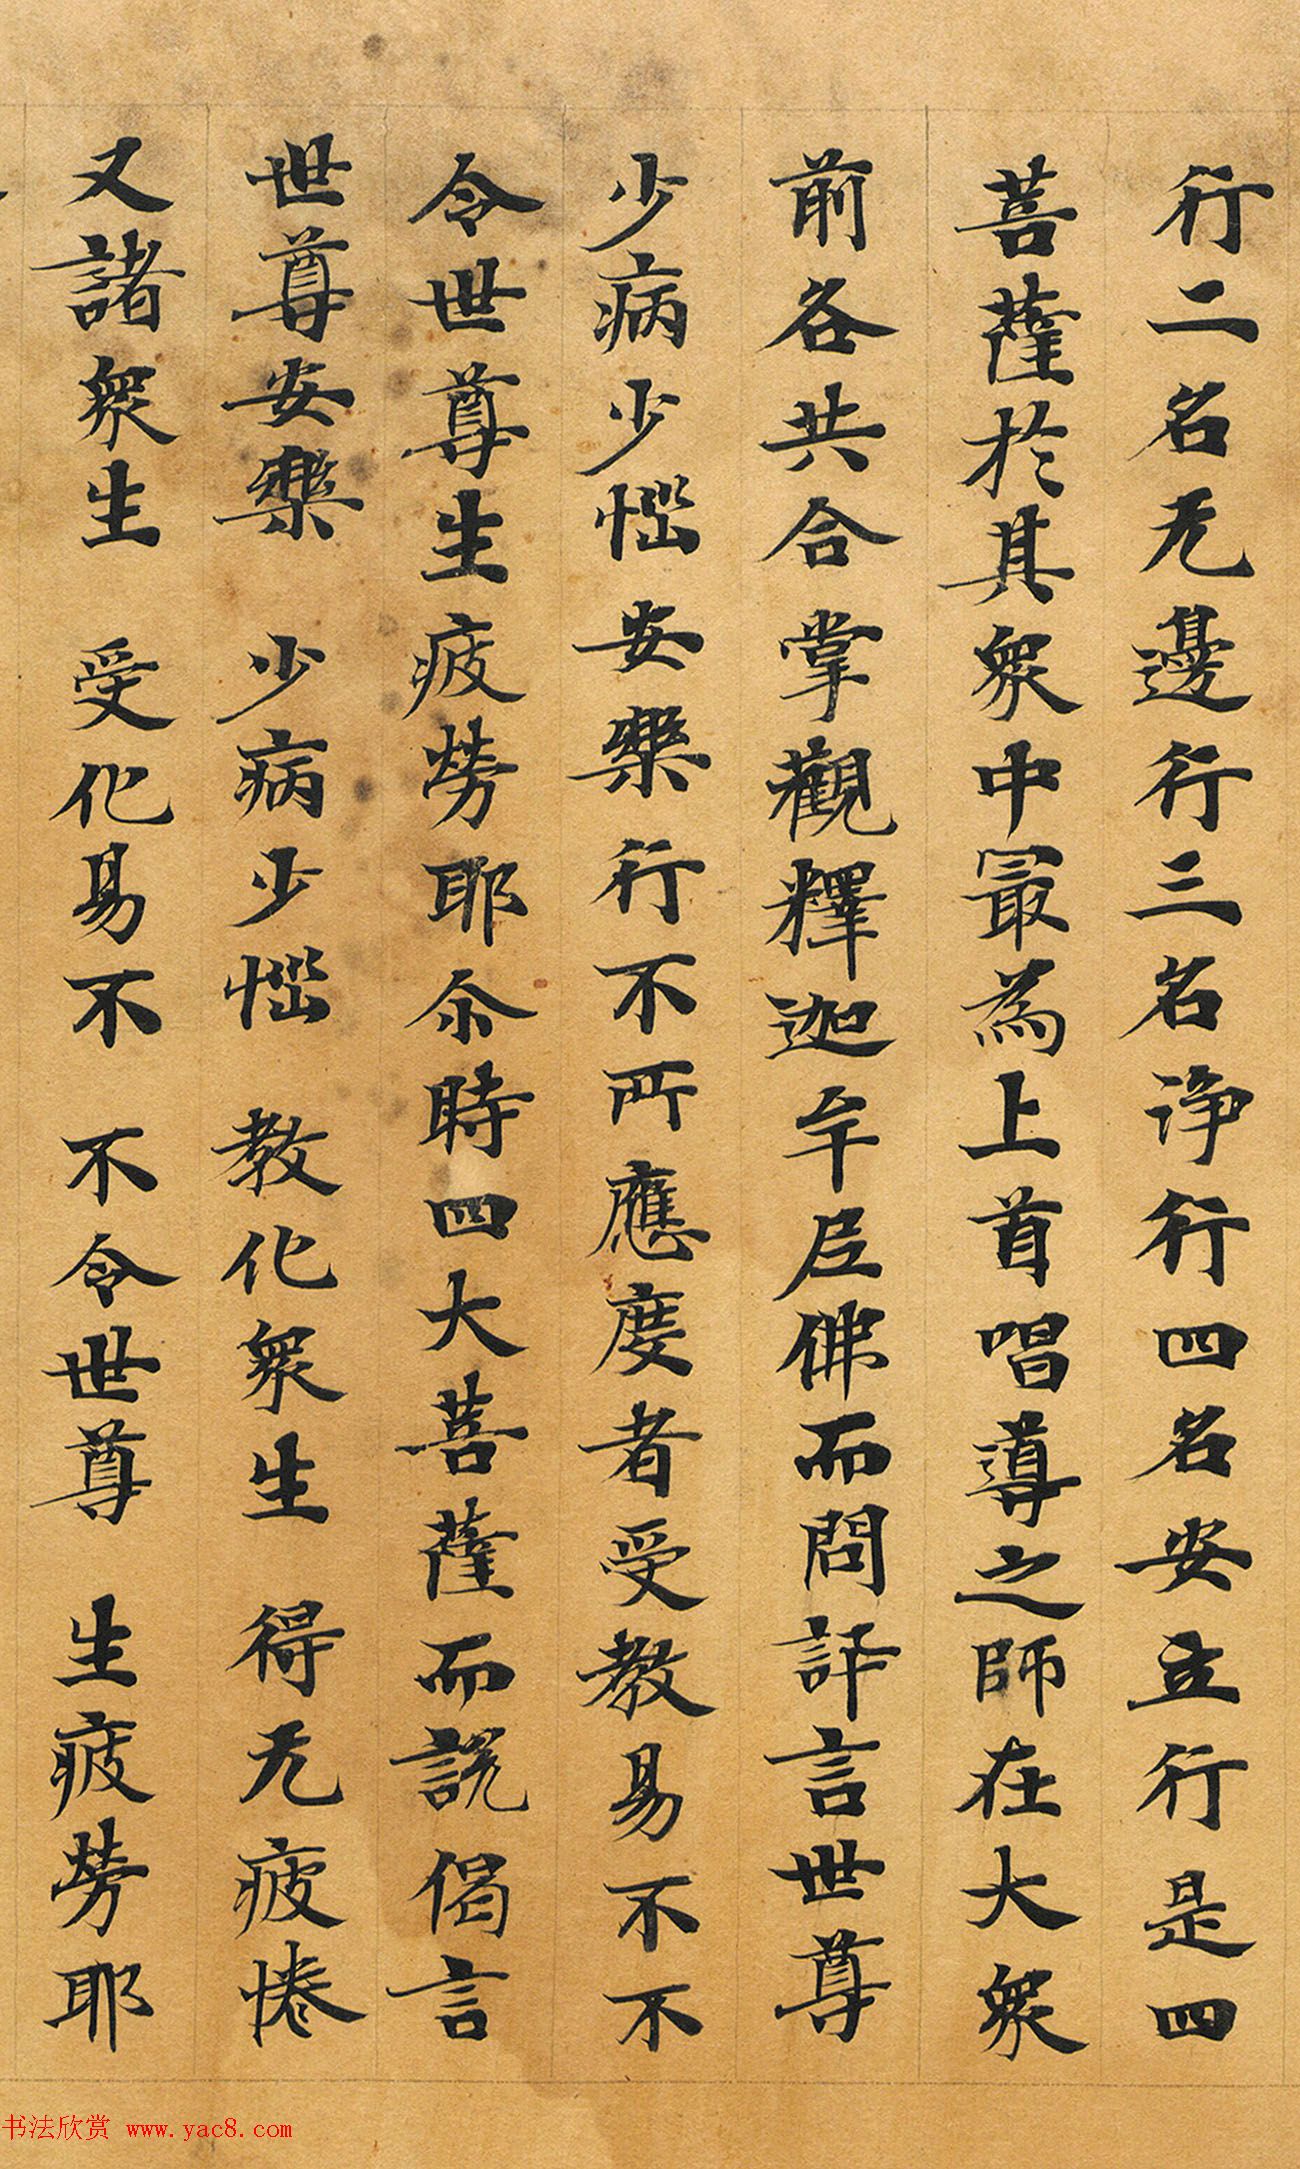 行二名无邊行三名浄行四名安立行是四
菩薩於其衆中冣為上首唱導之師在大衆
前各共合掌觀釋迦牟尼佛而問訊言世尊
少病少惱安樂行不所應度者受教易不不
令世尊生疲勞耶尒時四大菩薩而說偈言
世尊安樂 少病少惱 教化衆生 得无疲惓
又諸衆生 受化易不 不令世尊 生疲勞耶
书法欣赏 www.yac8.com